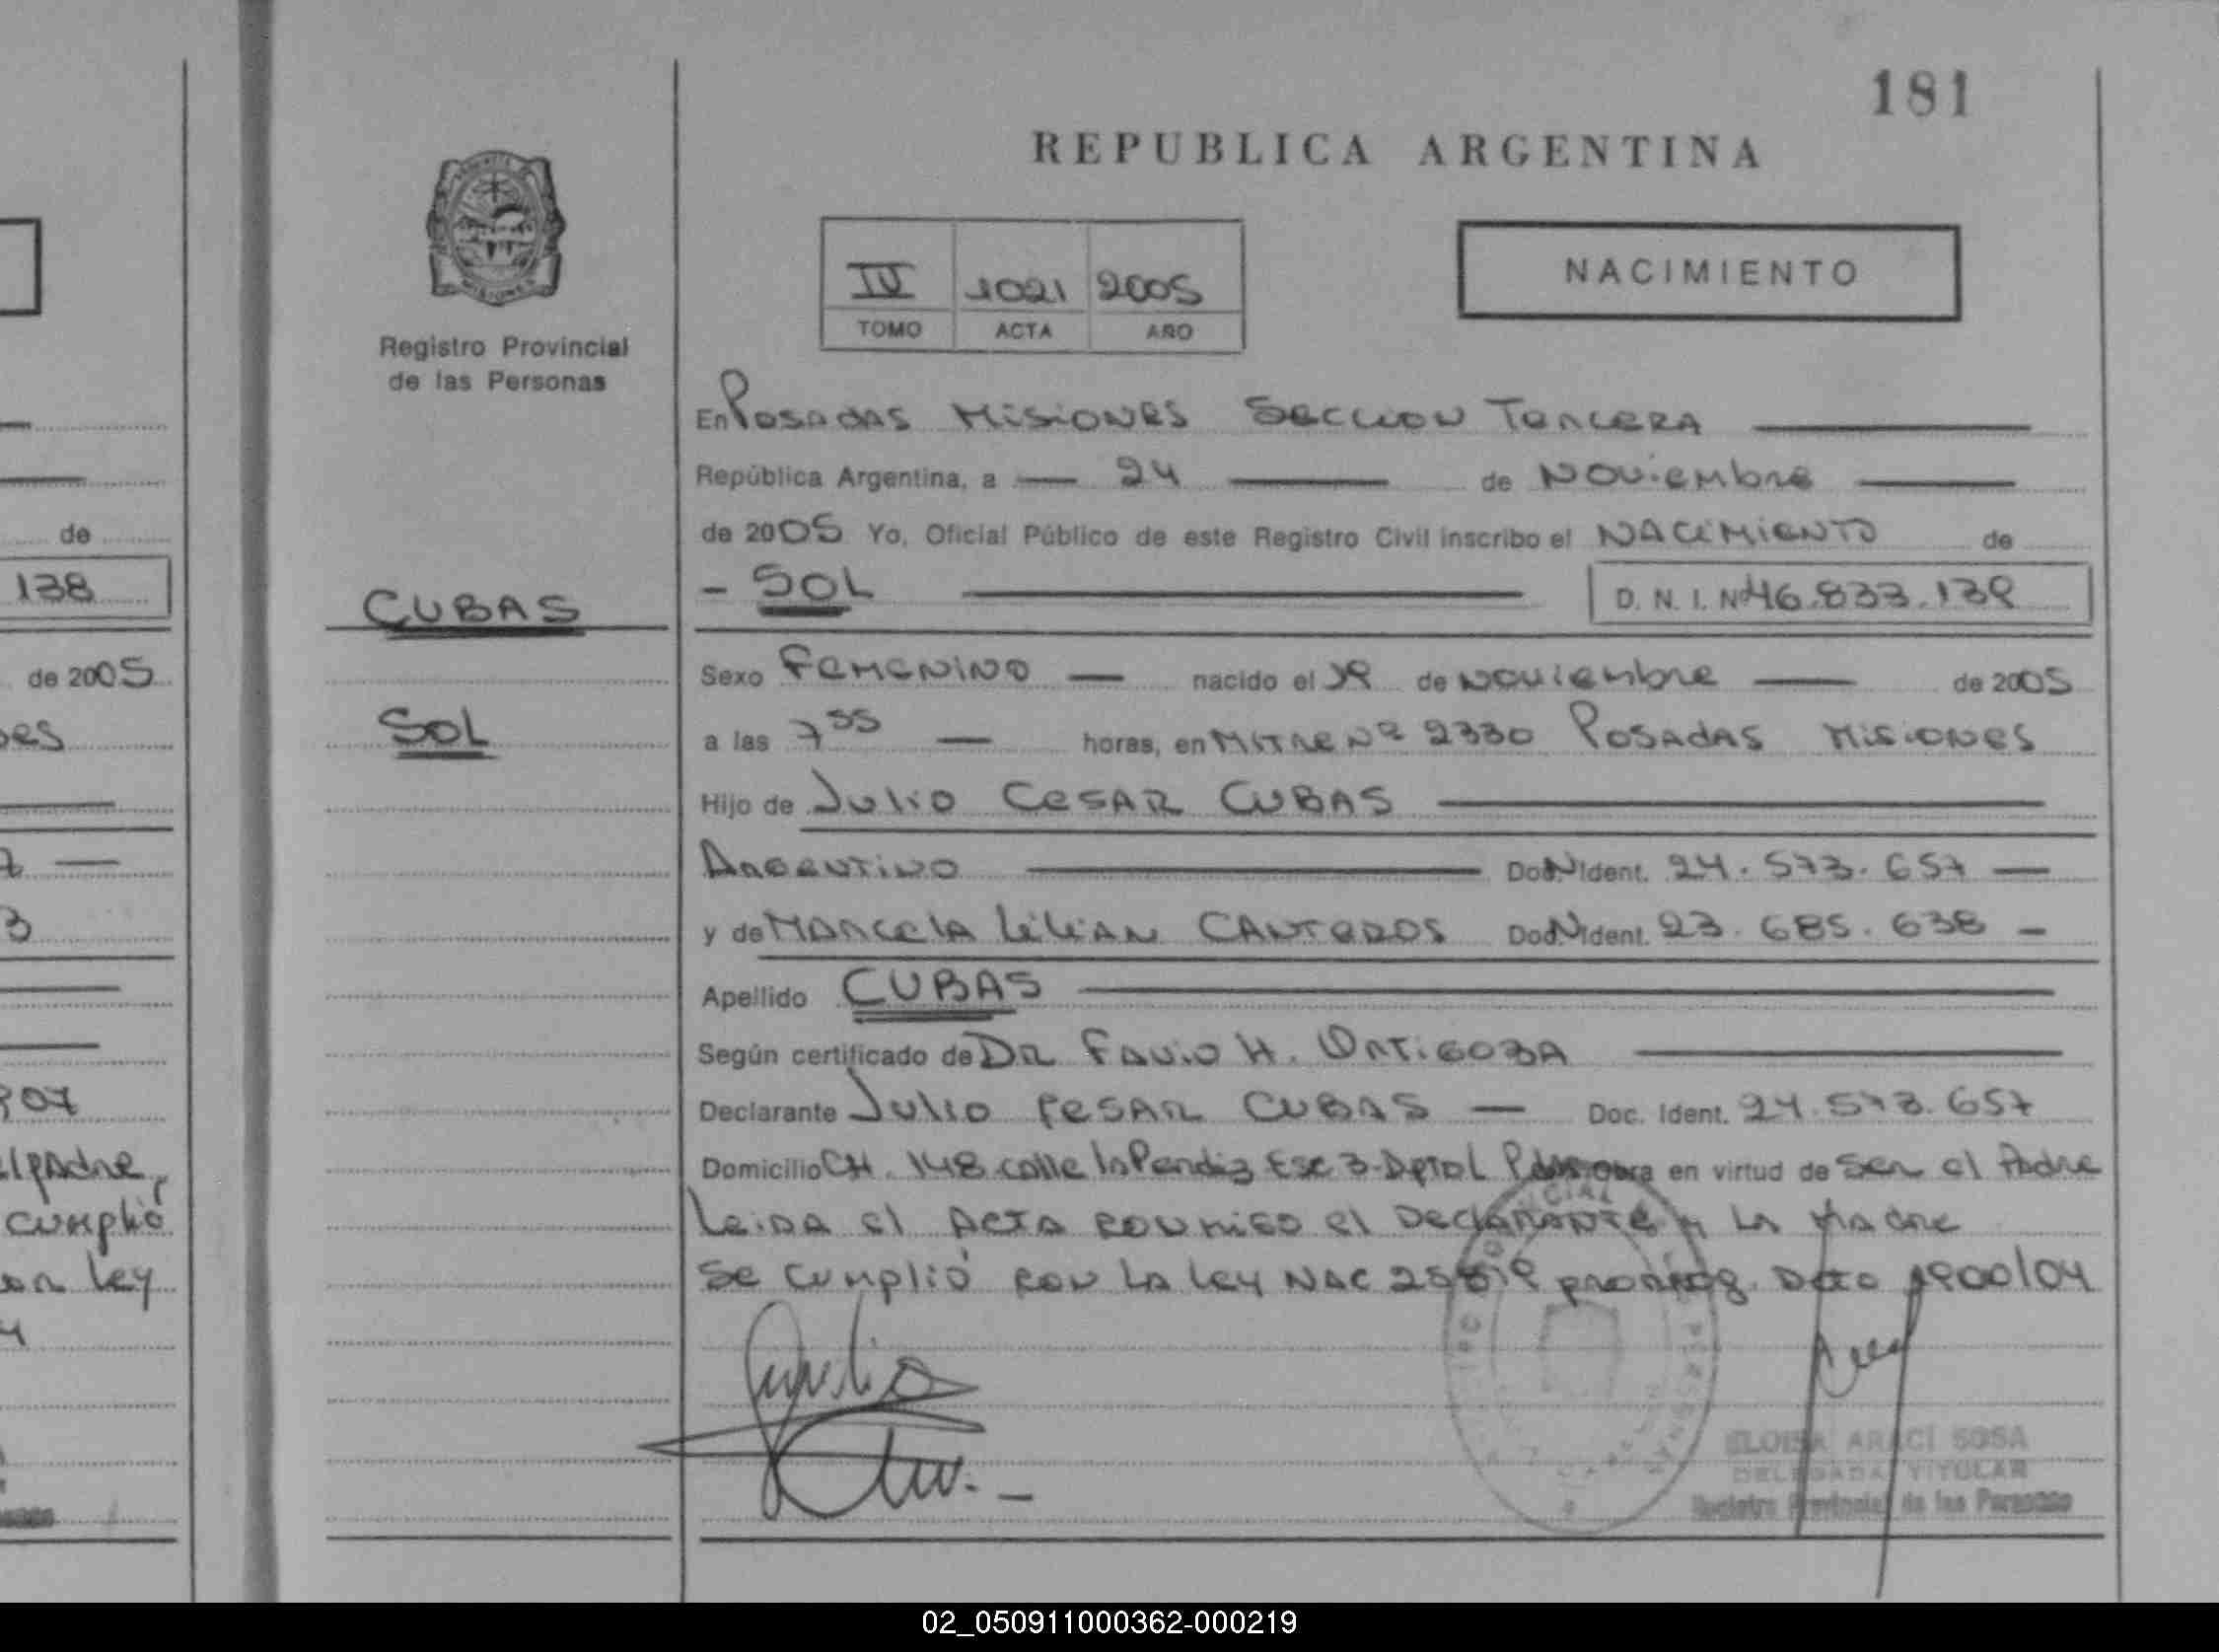 181
REPUBLICA ARGENTINA
NACIMIENTO
IV 1021 2005
TOMO ACTA AÑO
MISIONES
Registro Provincial
de las Personas
En Posadas Misiones Seccion Tercera
República Argentina, a 24 de Noviembre
de 2005 Yo, Oficial Público de este Registro Civil inscribo el Nacimiento de
- SOL D. N. I. Nº 46.833.139
CUBAS
SOL
Sexo Femenino nacido el 19 de noviembre de 2005
a las 7 55 horas, en Mitre Nº 2330 Posadas Misiones
Hijo de Julio Cesar CUBAS
Argentino Ident. 24.573.657
y de Marcela Lilian CANTEROS Ident. 23.685.638
Apellido CUBAS
Según certificado de Dr Favio H. Ortigoza
Declarante Julio Cesar CUBAS Doc. Ident. 24.573.657
Domicilio CH. 148 calle la Perdiz Esc 3 - Dpto L en virtud de ser el Padre
Leida el Acta conmigo el Declarante y la Madre
Se cumplió con la Ley Nac 25819 prorrog. Dcto 1900/04
ELOISA ARACI SOSA
DELEGADA TITULAR
Registro Provincial de las Personas
de
138
de 2005
el padre,
cumplió
Ley
02_050911000362-000219